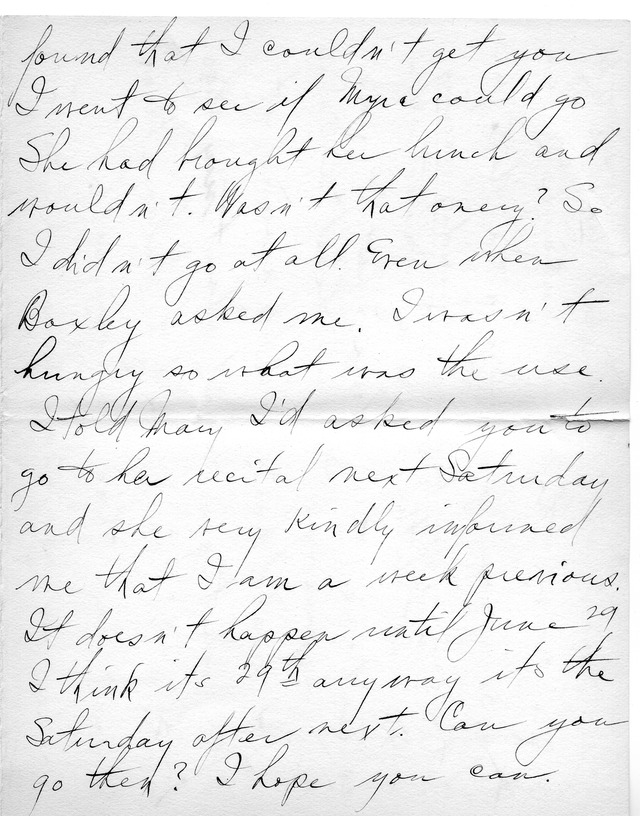 found that I couldn't get you
I went to see if Myra could go
She had brought her lunch and
wouldn't. Wasn't that onery? So
I didn't go at all. Even when
Boxley asked me. I wasn't
hungry so what was the use.
I told Mary I'd asked you to
go to her recital next Saturday
and she very kindly informed
me that I am a week previous.
It doesn't happen until June 29
I think its 29th anyway its the
Saturday after next. Can you
go then? I hope you can.